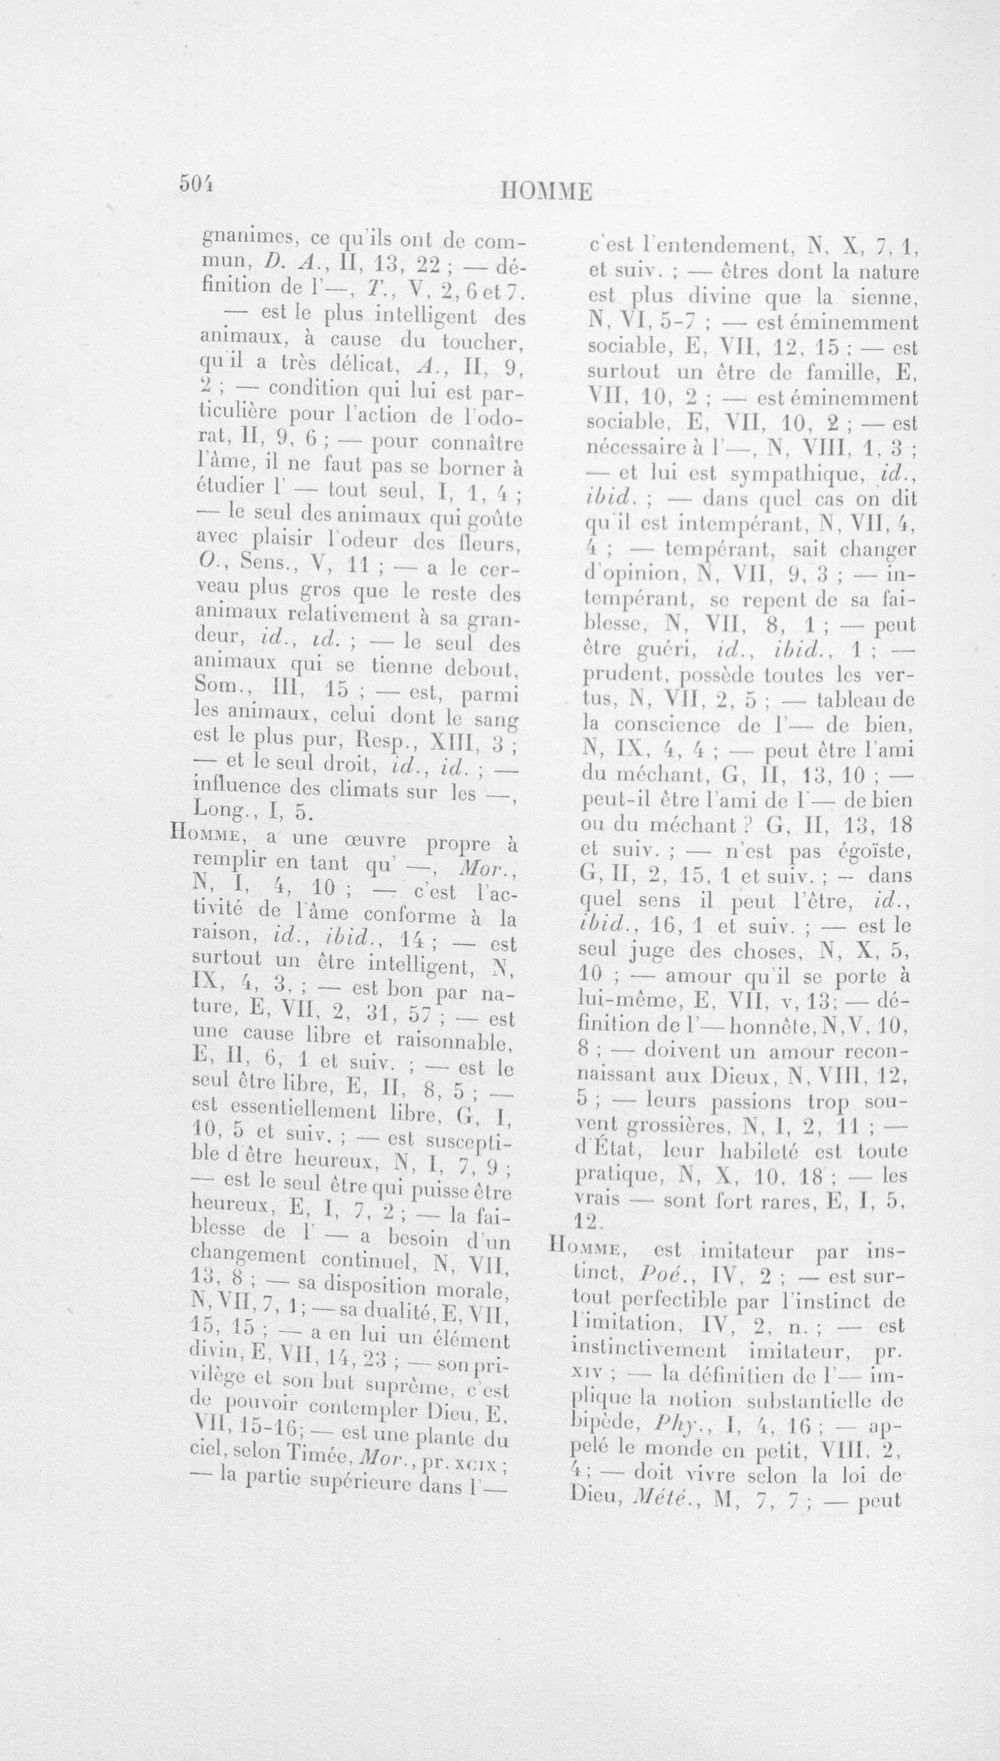 504
HOMME
gnanimes, ce qu'ils ont de com-
mun, D. A., II, 13, 22 ; — dé-
finition de l'—, T., V, 2, 6 et 7.
— est le plus intelligent des
animaux, à cause du toucher,
qu'il a très délicat, A., II, 9,
2 ; — condition qui lui est par-
ticulière pour l'action de l'odo-
rat, II, 9, 6 ; — pour connaître
l'âme, il ne faut pas se borner à
étudier l' — tout seul, I, 1, 4 ;
— le seul des animaux qui goûte
avec plaisir l'odeur des fleurs,
O., Sens., V, 11 ; — a le cer-
veau plus gros que le reste des
animaux relativement à sa gran-
deur, id., id. ; — le seul des
animaux qui se tienne debout,
Som., III, 15 ; — est, parmi
les animaux, celui dont le sang
est le plus pur, Resp., XIII, 3 ;
— et le seul droit, id., id. ; —
influence des climats sur les —,
Long., I, 5.
HOMME, a une œuvre propre à
remplir en tant qu' —, Mor.,
N, I, 4, 10 ; — c'est l'ac-
tivité de l'âme conforme à la
raison, id., ibid., 14 ; — est
surtout un être intelligent, N,
IX, 4, 3, ; — est bon par na-
ture, E, VII, 2, 31, 57 ; — est
une cause libre et raisonnable,
E, II, 6, 1 et suiv. ; — est le
seul être libre, E, II, 8, 5 ; —
est essentiellement libre, G, I,
10, 5 et suiv. ; — est suscepti-
ble d'être heureux, N, I, 7, 9 ;
— est le seul être qui puisse être
heureux, E, I, 7, 2 ; — la fai-
blesse de l' — a besoin d'un
changement continuel, N, VII,
13, 8 ; — sa disposition morale,
N, VII, 7, 1 ; — sa dualité, E, VII,
15, 15 ; — a en lui un élément
divin, E, VII, 14, 23 ; — son pri-
vilège et son but suprême, c'est
de pouvoir contempler Dieu, E,
VII, 15-16 ; — est une plante du
ciel, selon Timée, Mor., pr. XCIX ;
— la partie supérieure dans l'—
c'est l'entendement, N, X, 7, 1,
et suiv. ; — êtres dont la nature
est plus divine que la sienne,
N, VI, 5-7 ; — est éminemment
sociable, E, VII, 12, 15 ; — est
surtout un être de famille, E,
VII, 10, 2 ; — est éminemment
sociable, E, VII, 10, 2 ; — est
nécessaire à l'—, N, VIII, 1, 3 ;
— et lui est sympathique, id.,
ibid. ; — dans quel cas on dit
qu'il est intempérant, N, VII, 4,
4 ; — tempérant, sait changer
d'opinion, N, VII, 9, 3 ; — in-
tempérant, se repent de sa fai-
blesse, N, VII, 8, 1 ; — peut
être guéri, id., ibid., 1 ; —
prudent, possède toutes les ver-
tus, N, VII, 2, 5 ; — tableau de
la conscience de l'— de bien,
N, IX, 4, 4 ; — peut être l'ami
du méchant, G, II, 13, 10 ; —
peut-il être l'ami de l'— de bien
ou du méchant ? G, II, 13, 18
et suiv. ; — n'est pas égoïste,
G, II, 2, 15, 1 et suiv. ; — dans
quel sens il peut l'être, id.,
ibid., 16, 1 et suiv. ; — est le
seul juge des choses, N, X, 5,
10 ; — amour qu'il se porte à
lui-même, E, VII, v, 13 ; — dé-
finition de l'— honnête, N, V, 10,
8 ; — doivent un amour recon-
naissant aux Dieux, N, VIII, 12,
5 ; — leurs passions trop sou-
vent grossières, N, I, 2, 11 ; —
d'État, leur habileté est toute
pratique, N, X, 10, 18 ; — les
vrais — sont fort rares, E, I, 5,
12.
HOMME, est imitateur par ins-
tinct, Poé., IV, 2 ; — est sur-
tout perfectible par l'instinct de
l'imitation, IV, 2, n. ; — est
instinctivement imitateur, pr.
XIV ; — la définitien de l'— im-
plique la notion substantielle de
bipède, Phy., I, 4, 16 ; — ap-
pelé le monde en petit, VIII, 2,
4 ; — doit vivre selon la loi de
Dieu, Mété., M, 7, 7 ; — peut